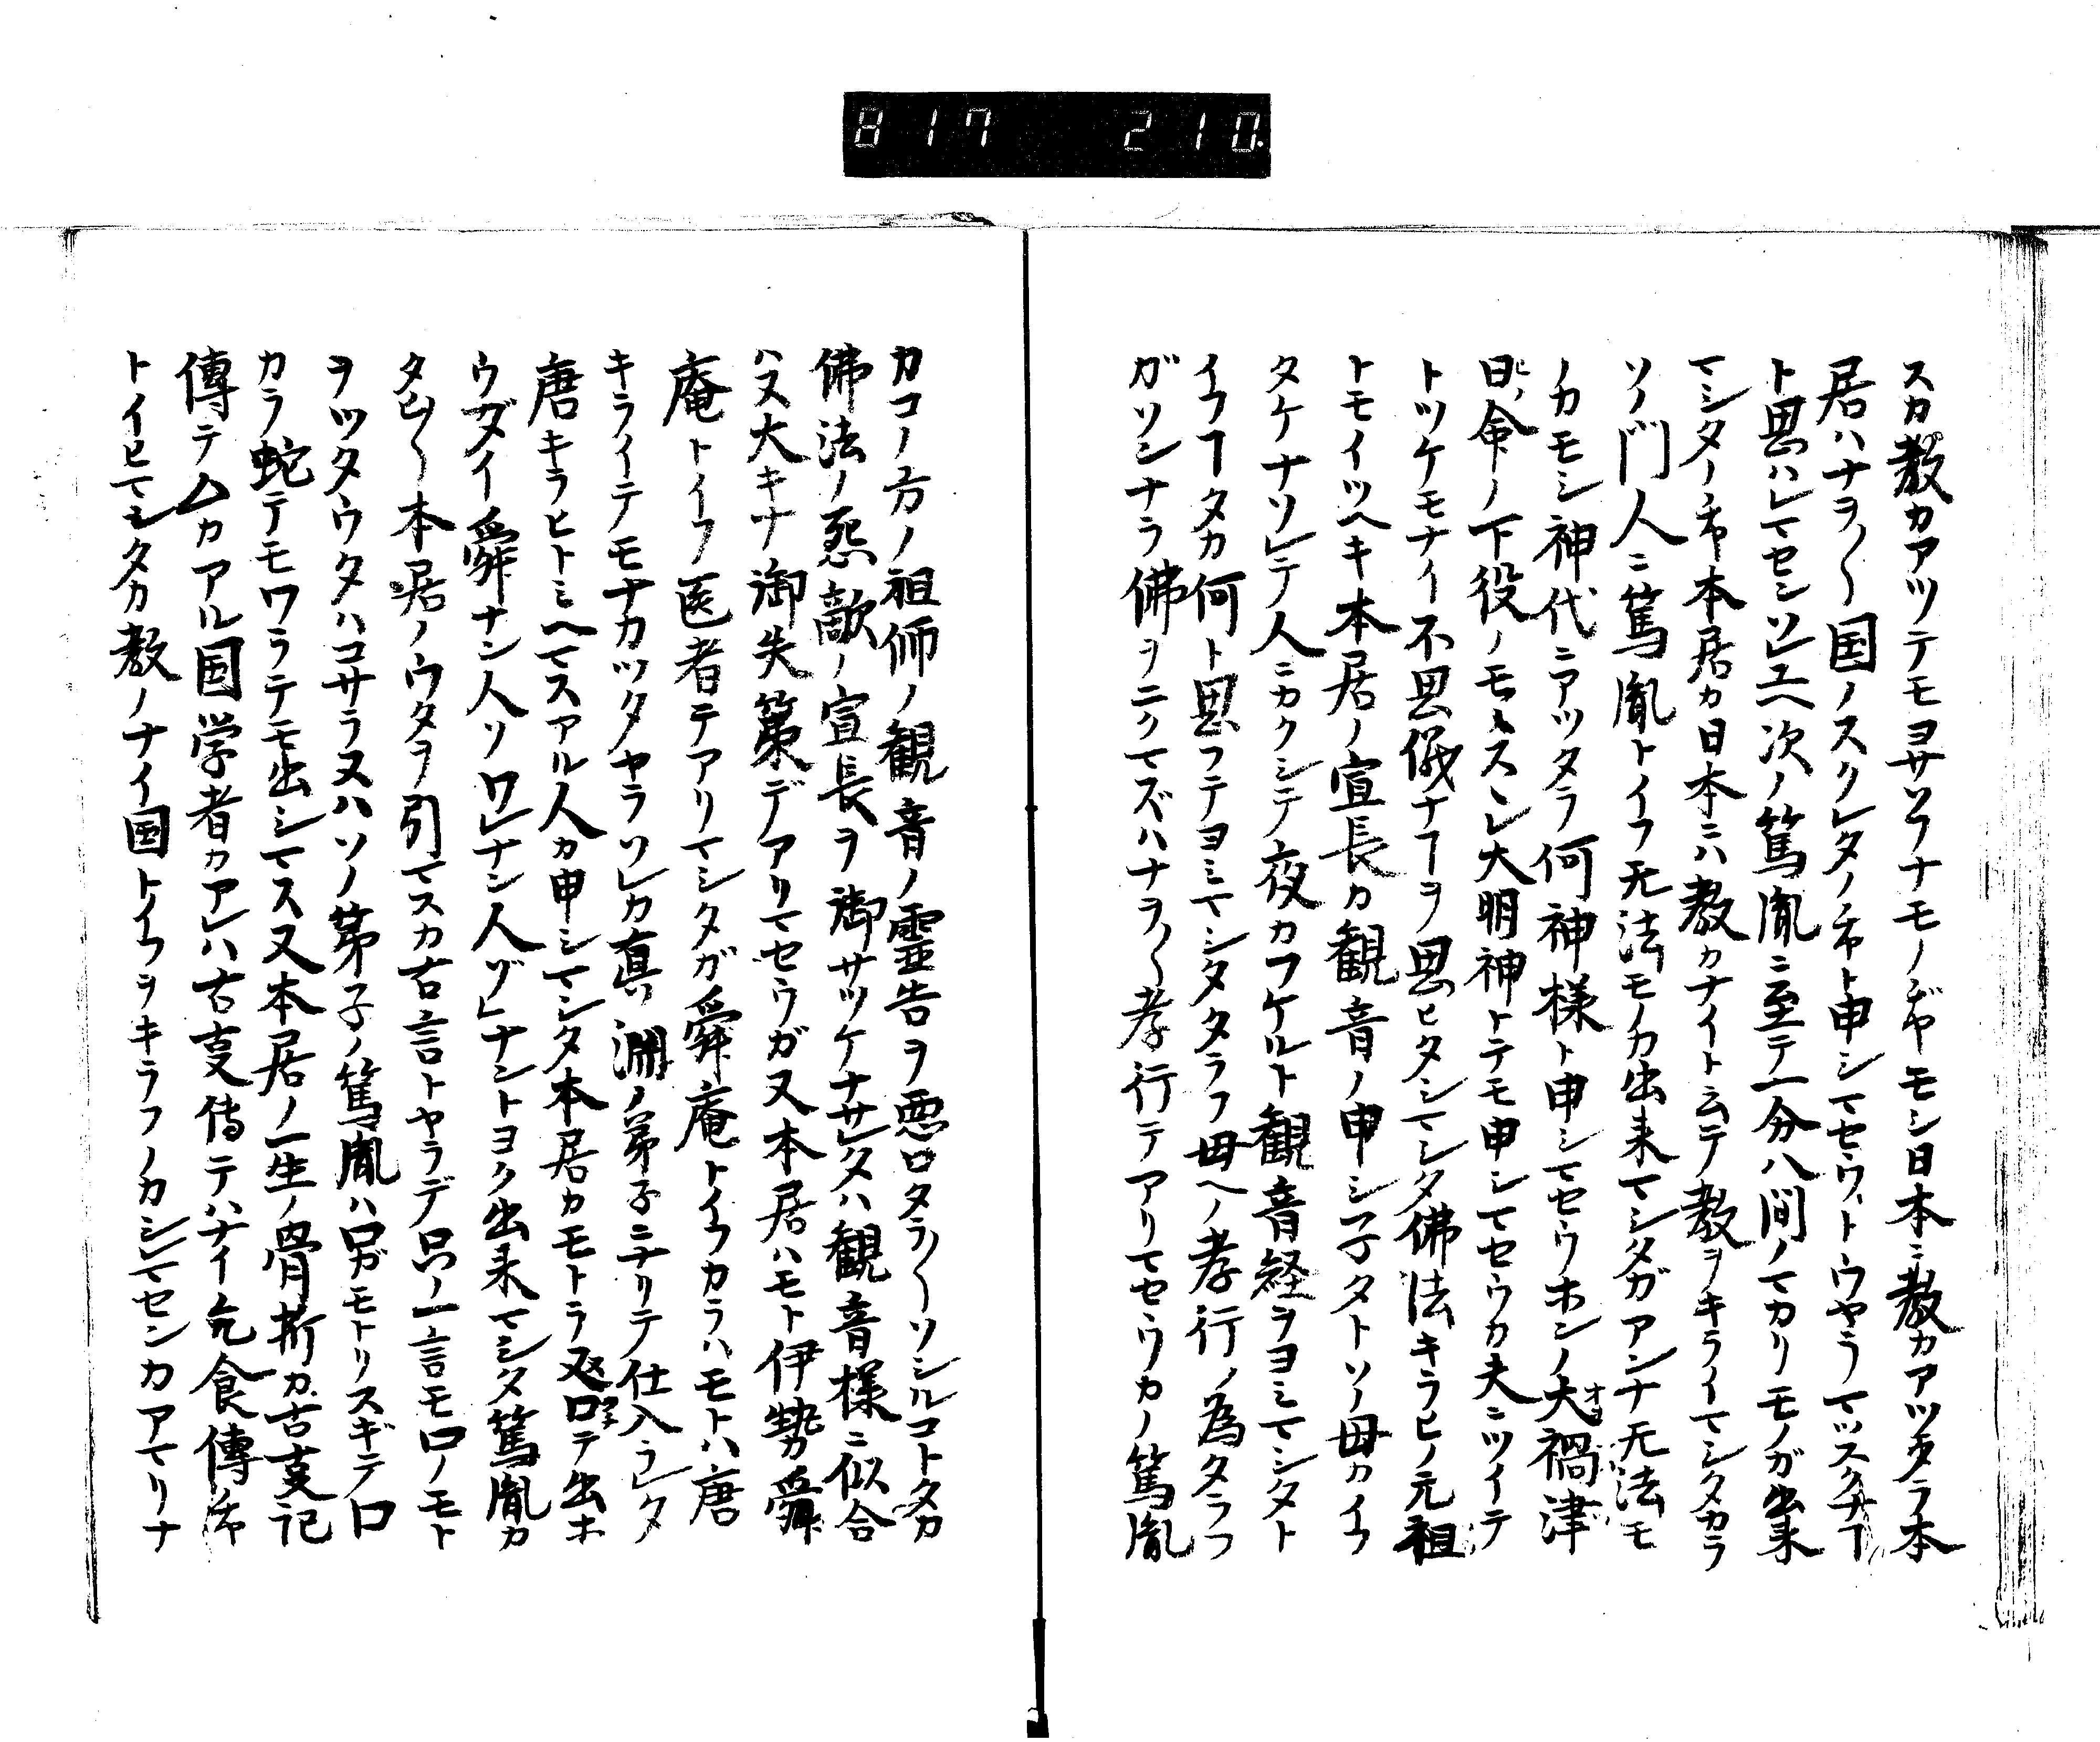 817 210
スカ教カアツテモヨサソウナモノヂヤモシ日本ニ教カアツタラ本
居ハナヲ〱国ノスクレタノ糸ト申シマセウトウヤラマツスクナヿ
ト思ハレマセンソレユヘ次ノ篤胤ニ至テ一分八間ノマカリモノガ出来
マシタノ糸本居カ日本ニハ教カナイト云テ教ヲキライマシタカラ
ソノ門人ニ篤胤トイフ无法モノカ出来マシタガアンナ无法モ
ノカモシ神代ニアツタラ何神様ト申シマセウホンノ大禍津
日ノ命ノ下役ノモヽスンレ大明神トテモ申シマセウカ夫ニツイテ
トツケモナイ不思儀ナヿヲ思ヒタシマシタ佛法キラヒノ元祖
トモイツヘキ本居ノ宣長カ観音ノ申シ子タトソノ母カイフ
タケナソレテ人ニカクシテ夜カフケルト観音経ヲヨミマシタト
イフヿタカ何ト思フテヨミマシタタラフ母ヘノ孝行ノ為タラフ
ガソンナラ佛ヲニクマズハナヲ〱孝行テアリマセウカノ篤胤
カコノ方ノ祖師ノ観音ノ霊告ヲ悪口タラ〱ソシルコトタカ
佛法ノ怨敵ノ宣長ヲ御サツケナサレタハ観音様ニ似合
ハヌ大キナ御失策デアリマセウガ又本居ハモト伊勢舜
庵トイフ医者テアリマシタガ舜庵トイフカラハモトハ唐
キライテモナカツタヤラソレカ真渕ノ弟子ニナリテ仕入ラレタ
唐キラヒトミヘマスアル人カ申シマシタ本居カモトラ及ロテ出ホ
ウダイ舜ナン人ソワレナン人ゾレナントヨク出来マシタ篤胤カ
タム〱本居ノウタヲ引マスカ古言トヤラデ只ノ一言モ口ノモト
ヲツタウタハコサラヌハソノ弟子ノ篤胤ハ口ガモトリスギテ口
カラ蛇テモワラテモ出シマス又本居ノ一生ノ骨折カ古事記
傳テムカアル国学者カアレハ古事傳テハナイ乞食傳糸
トイヒマシタカ教ノナイ国トイフヲキラフノカシマセンカアマリナ